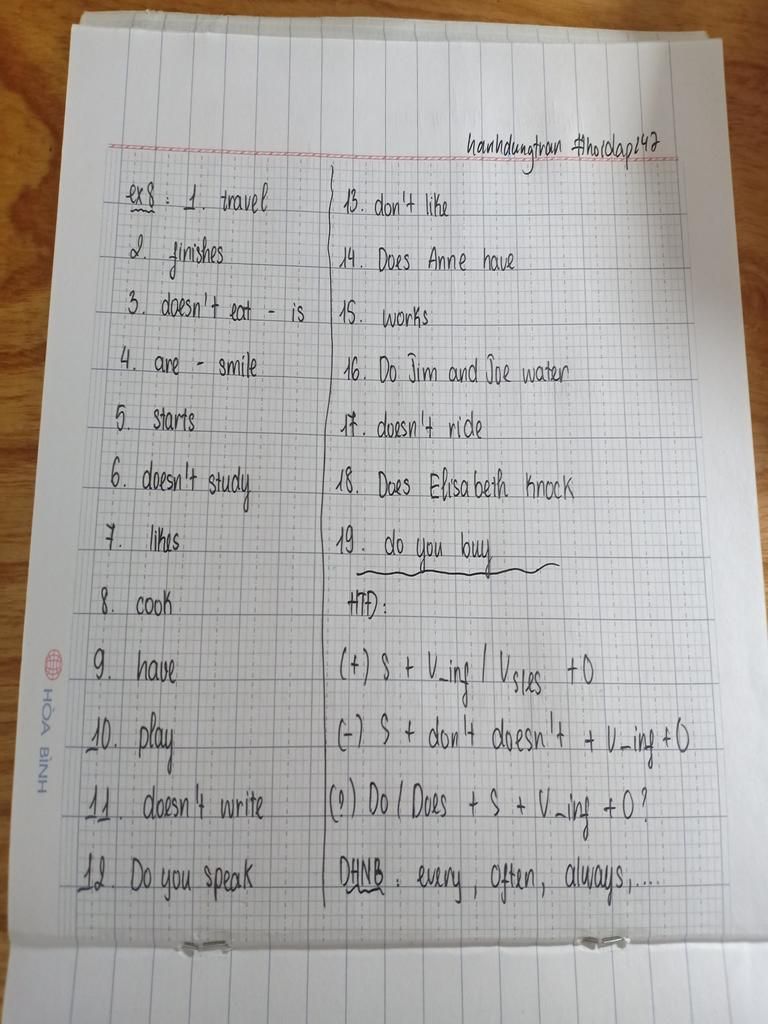 hanhdungtran #hoidap247
ex8 : 1. travel
2. finishes
3. doesn't eat - is
4. are - smile
5. starts
6. doesn't study
7. likes
8. cook
9. have
10. play
11. doesn't write
12. Do you speak
13. don't like
14. Does Anne have
15. works
16. Do Jim and Joe water
17. doesn't ride
18. Does Elisabeth knock
19. do you buy
HTĐ:
(+) S + V_ing / Vs/es + O
(-) S + don't doesn't + V_ing + O
(?) Do / Does + S + V_ing + O?
DHNB : every, often, always,....
HÒA BÌNH